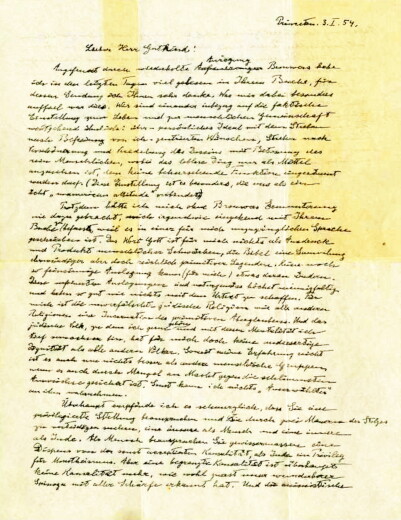 Princeton. 3. I. 54.
Lieber Herr Gutkind!
Angefeuert durch wiederholte Anregung Brouwers habe
ich in den letzten Tagen viel gelesen in Ihrem Buche, für
dessen Sendung ich Ihnen sehr danke. Was mir dabei besonders
auffiel war dies. Wir sind einander inbezug auf die faktische
Einstellung zum Leben und zur menschlichen Gemeinschaft
weitgehend ähnlich: persönliches Ideal mit dem Streben
nach Befreiung von ich-zentrierten Wünschen, Streben nach
Verschönerung und Veredelung des Daseins mit Betonung des
rein Menschlichen, wobei das leblose Ding nur als Mittel
anzusehen ist, dem keine beherrschende Funktion eingeräumt
werden darf. (Diese Einstellung ist es besonders, die uns als ein
echt „unamerican attitude" verbindet)
Trotzdem hätte ich mich ohne Brouwers Ermunterung
nie dazu gebracht, mich irgendwie eingehend mit Ihrem
Buche zu befassen, weil es in einer für mich unzugänglichen Sprache
geschrieben ist. Das Wort Gott ist für mich nichts als Ausdruck
und Produkt menschlicher Schwächen, die Bibel eine Sammlung
ehrwürdiger aber doch reichlich primitiver Legenden. Keine noch
so feinsinnige Auslegung kann (für mich) etwas daran ändern.
Diese verfeinerten Auslegungen sind naturgemäss höchst mannigfaltig
und haben so gut wie nichts mit dem Urtext zu schaffen. Für
mich ist die unverfälschte jüdische Religion wie alle anderen
Religionen eine Incarnation des primitiven Aberglaubens. Und das
jüdische Volk, zu dem ich gerne gehöre und mit dessen Mentalität ich
tief verwachsen bin, hat für mich doch keine andersartige
Dignität als alle anderen Völker. Soweit meine Erfahrung reicht
ist es auch um nichts besser als andere menschliche Gruppen
wenn es auch durch Mangel an Macht gegen die schlimmsten
Auswüchse gesichert ist. Sonst kann ich nichts „Auserwähltes"
an ihm wahrnehmen.
Überhaupt empfinde ich es schmerzlich, dass Sie eine
privilegierte Stellung beanspruchen und sie durch zwei Mauern des Stolzes
zu verteidigen suchen, eine äussere als Mensch und eine innere
als Jude. Als Mensch beanspruchen Sie gewissermassen einen
Dispens von der sonst acceptierten Kausalität, als Jude ein Privileg
für Monotheismus. Aber eine begrenzte Kausalität ist überhaupt
keine Kausalität mehr, wie wohl zuerst unser wunderbarer
Spinoza mit aller Schärfe erkannt hat. Und die animistische